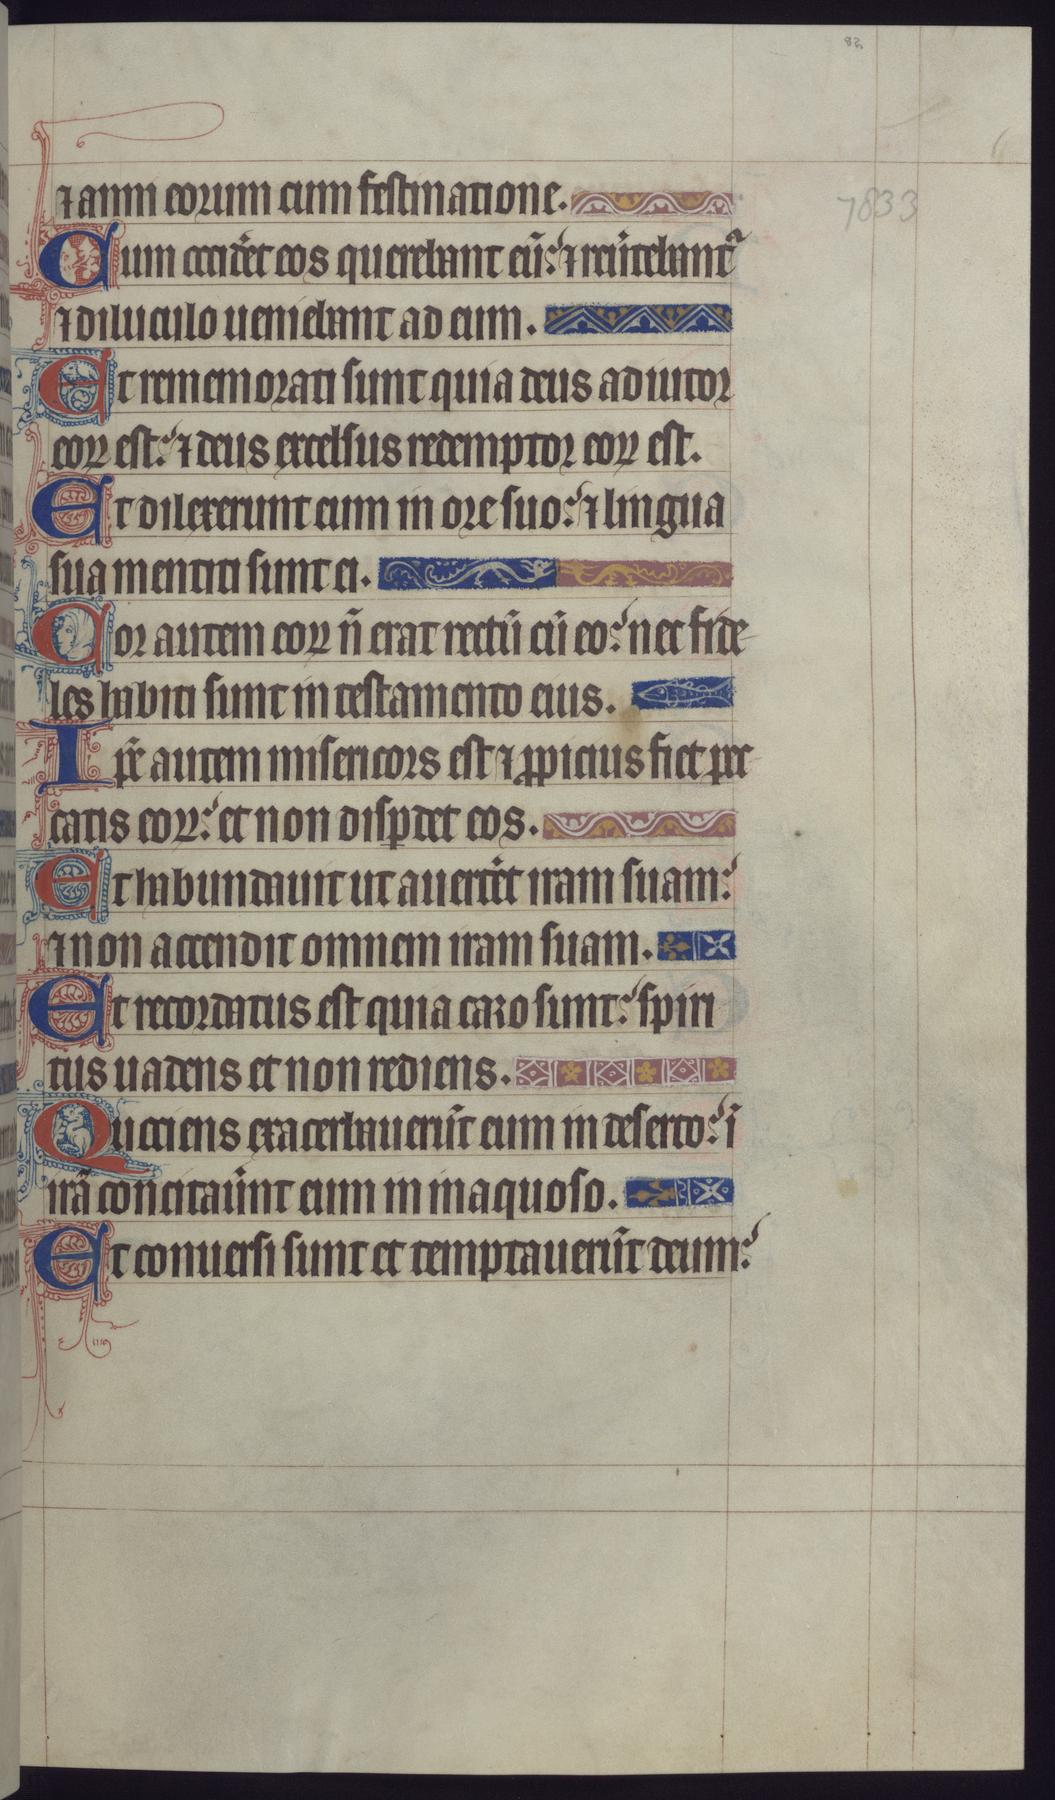 82
7833
⁊ anni eorum cum festinatione.
Cum occid'et eos querebant eū: ⁊ reūtebant'
⁊ diluculo ueniebant ad eum.
Et rememorati sunt quia deus adiutor
eoꝝ est: ⁊ deus excelsus redemptor eoꝝ est.
Et dilexerunt eum in ore suo: ⁊ lingua
sua mentiti sunt ei.
Cor autem eoꝝ n̄ erat rectū cū eo: nec fide-
les habiti sunt in testamento eius.
Ip̄e autem misericors est ⁊ ꝓpicius fiet pec-
catis eoꝝ: et non disꝑdet eos.
Et habundauit ut auert'et iram suam:
⁊ non accendit omnem iram suam.
Et recordatus est quia caro sunt: spiri
tus uadens et non rediens.
Quociens exacerbauerūt eum in deserto: ī
irā concitaūunt eum in inaquoso.
Et conuersi sunt et temptauerūt deum: